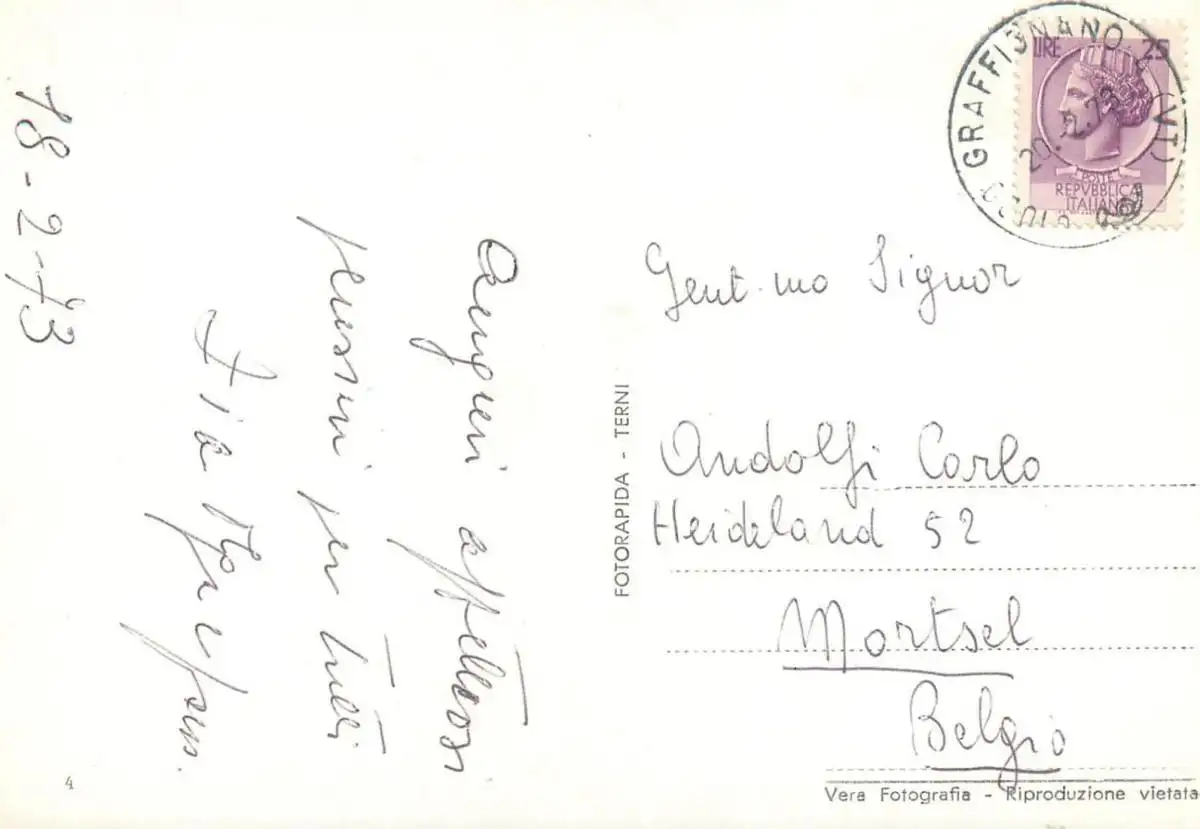 18-2-73
Auguri affettuosi
per tutti
Zia
FOTORAPIDA - TERNI
GRAFFIGNANO (VT)
20.2.73
LIRE 25
POSTE
REPVBBLICA
ITALIANA
Gent.mo Signor
Andolfi Carlo
Heideland 52
Mortsel
Belgio
4
Vera Fotografia - Riproduzione vietata